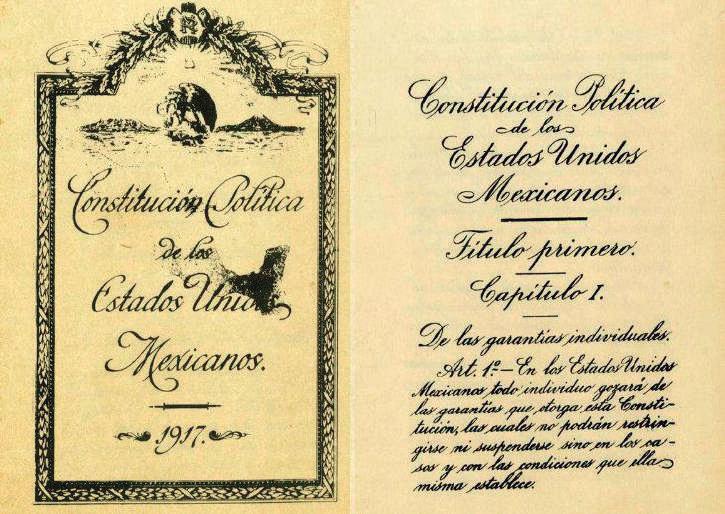 Constitución Política
de los
Estados Unidos
Mexicanos.
1917.
Constitución Política
de los
Estados Unidos
Mexicanos.
Título primero.
Capítulo I.
De las garantías individuales.
Art. 1º.—En los Estados Unidos
Mexicanos todo individuo gozará de
las garantías que otorga esta Consti-
tución, las cuales no podrán restrin-
girse ni suspenderse sino en los ca-
sos y con las condiciones que ella
misma establece.